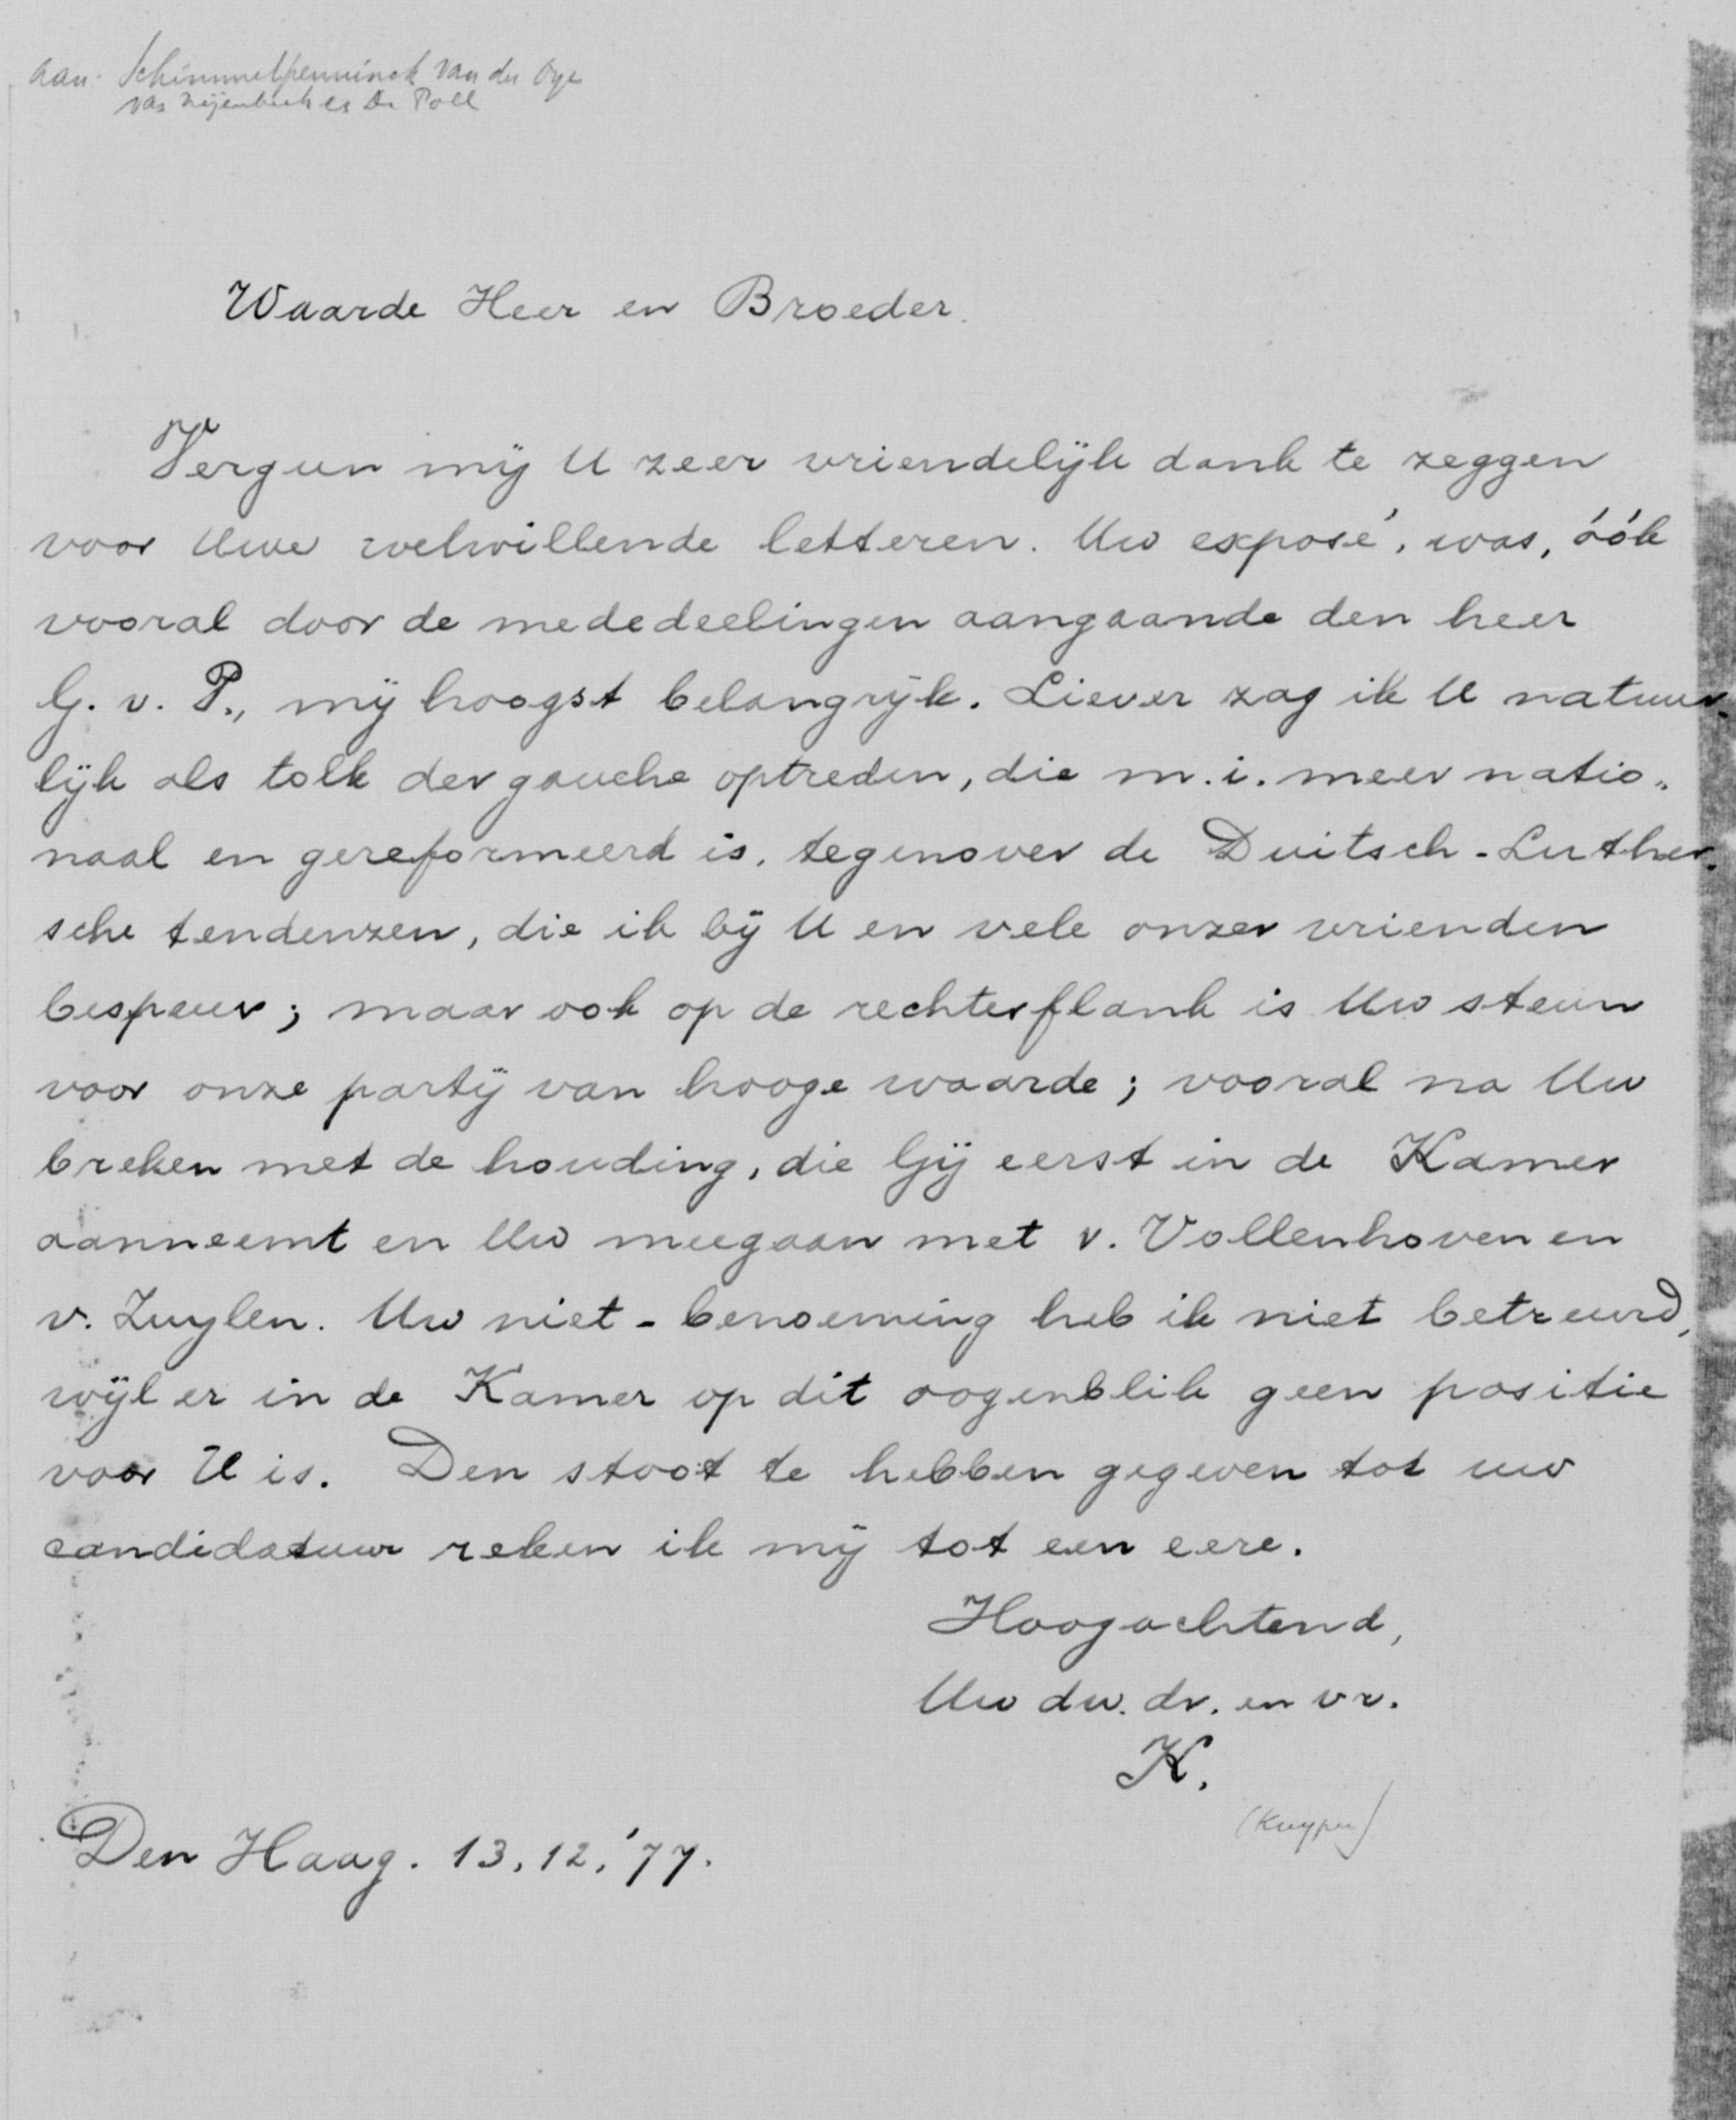 aan: Schimmelpenninck van der Oye
van Nijenbeek en De Poll
Waarde Heer en Broeder.
Vergun mij U zeer vriendelijk dank te zeggen
voor Uwe welwillende letteren. Uw exposé, was, óók
vooral door de mededeelingen aangaande den heer
G. v. P., mij hoogst belangrijk. Liever zag ik U natuur-
lijk als tolk der gauche optreden, die m.i. meer natio-
naal en gereformeerd is, tegenover de Duitsch-Luther-
sche tendenzen, die ik bij U en vele onzer vrienden
bespeur; maar ook op de rechterflank is Uw steun
voor onze partij van hooge waarde; vooral na Uw
breken met de houding, die Gij eerst in de Kamer
aanneemt en Uw meegaan met v. Vollenhoven en
v. Zuylen. Uw niet-benoeming heb ik niet betreurd,
wijl er in de Kamer op dit oogenblik geen positie
voor U is. Den stoot te hebben gegeven tot uw
candidatuur reken ik mij tot een eere.
Hoogachtend,
Uw dw. dr. en vr.
K.
(Kuyper)
Den Haag. 13.12.'77.